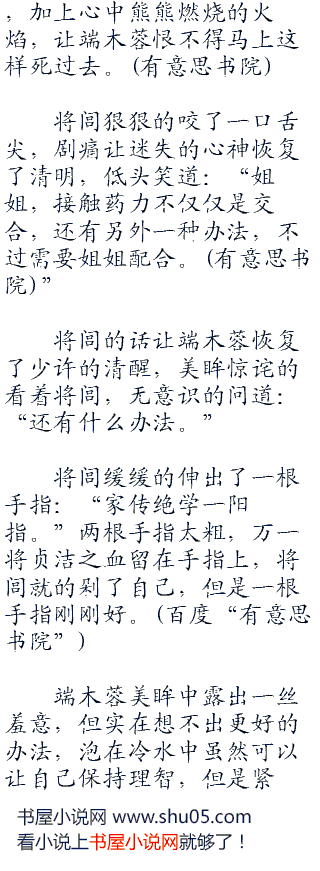 ，加上心中熊熊燃烧的火
焰，让端木蓉恨不得马上这
样死过去。(有意思书院)
将闾狠狠的咬了一口舌
尖，剧痛让迷失的心神恢复
了清明，低头笑道：“姐
姐，接触药力不仅仅是交
合，还有另外一种办法，不
过需要姐姐配合。(有意思书
院)”
将闾的话让端木蓉恢复
了少许的清醒，美眸惊诧的
看着将闾，无意识的问道：
“还有什么办法。”
将闾缓缓的伸出了一根
手指：“家传绝学一阳
指。”两根手指太粗，万一
将贞洁之血留在手指上，将
闾就的剁了自己，但是一根
手指刚刚好。(百度“有意思
书院”)
端木蓉美眸中露出一丝
羞意，但实在想不出更好的
办法，泡在冷水中虽然可以
让自己保持理智，但是紧
书屋小说网 www.shu05.com
看小说上书屋小说网就够了！